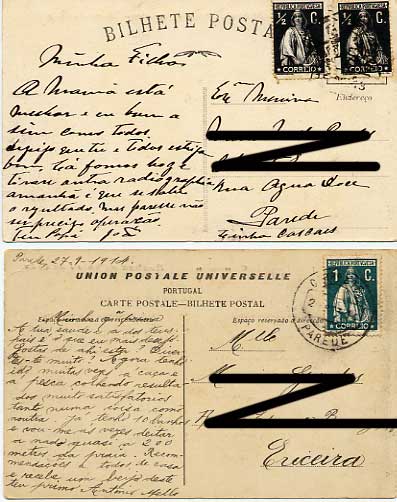 BILHETE POSTA
REPUBLICA PORTUGUESA
½ C.
CORREIO
REPUBLICA PORTUGUESA
½ C.
CORREIO
Minha Filha
A Mamã está
melhor e eu bem a
sim como todos
desejo que tu e todos esteja
bem. Lá fomos hoje
tirar outra radiographia
amanhã é que se sabe
o resultado. Mas parece não
ser preciso operação.
Teu Papá José
Endereço
Exª Menina
Rua Agua Doce
Parede
Linha Cascaes
Parede 27-9-1914.
UNION POSTALE UNIVERSELLE
PORTUGAL
CARTE POSTALE—BILHETE POSTAL
REPUBLICA PORTUGUESA
1 C.
CORREIO
PAREDE
Espaço reservado á
A tua saude e a dos teus
pais é o que eu mais desejo.
Gostas de ahi estar?
muito. Agora tenho
ido muitas vezes á caça e
a pesca colhendo resulta
dos muito satisfatorios
tant numa coisa como
noutra. Já tenho 10 banhos
e vou-me ás vezes deitar
a nado quasi a 200
metros da praia. Recom-
mendações a todos de casa
e recebe um beijo deste
teu primo Antonio Mello
Mlle
Ericeira